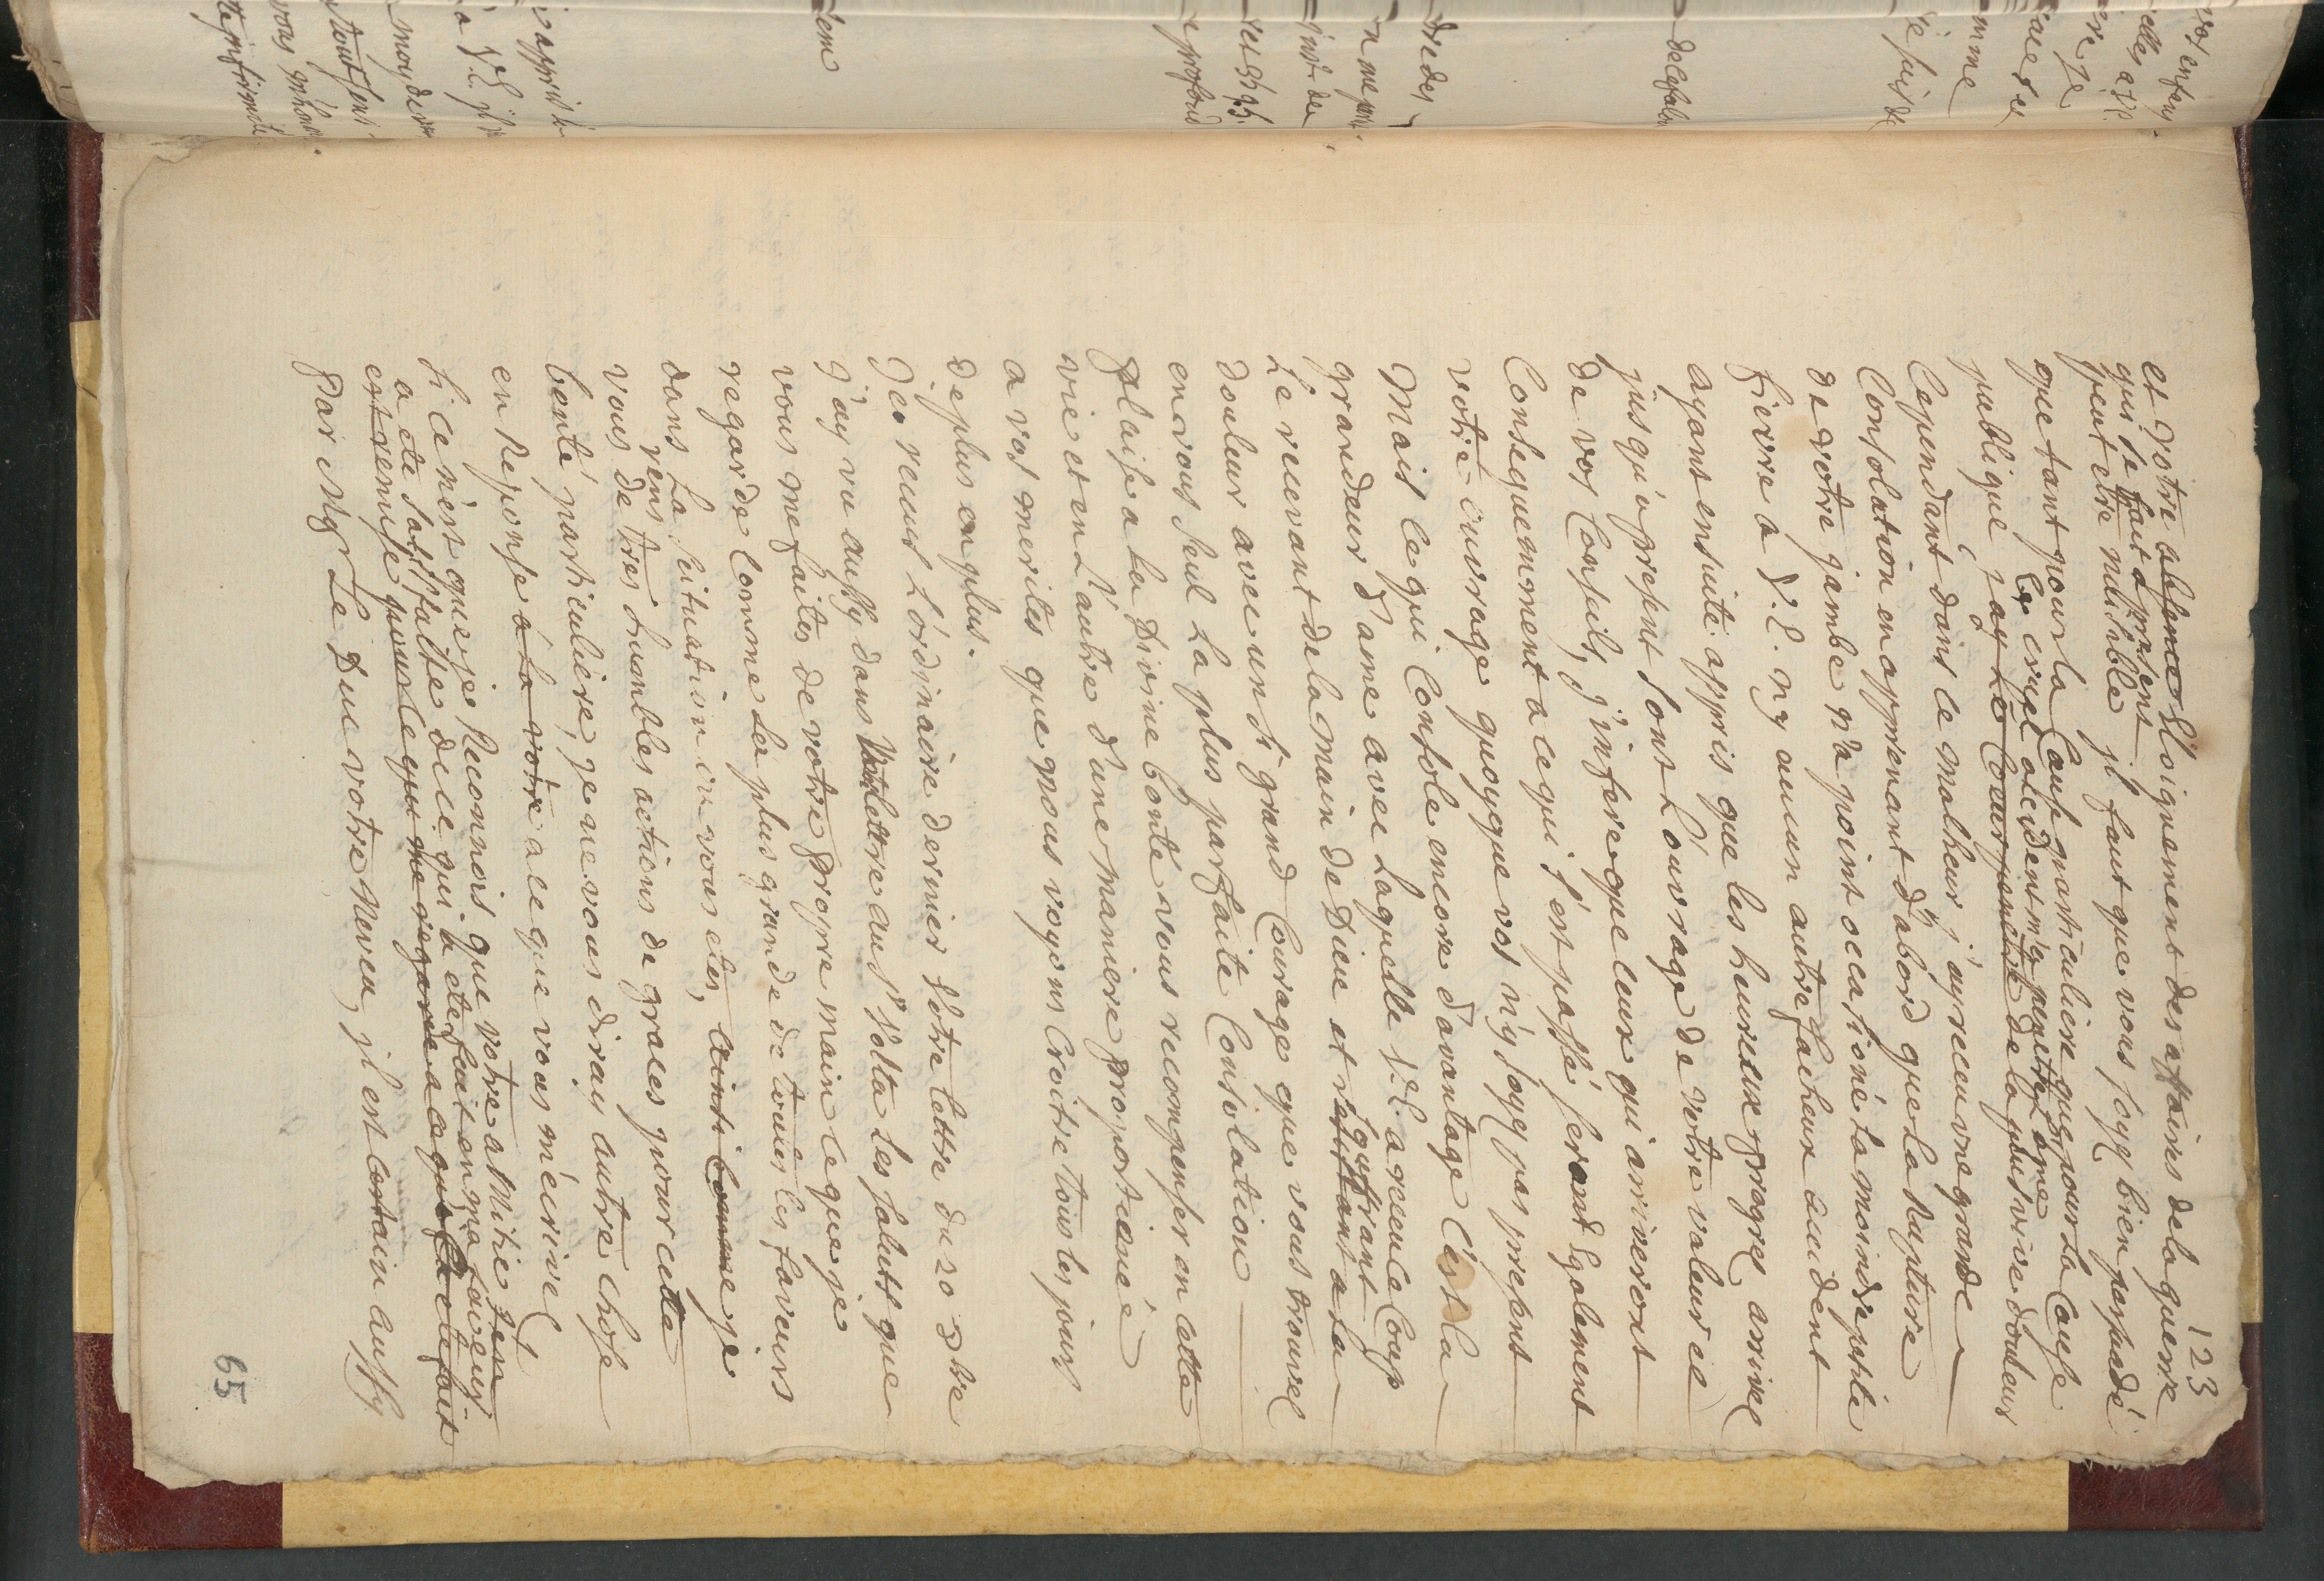 123
et votre absence Eloignement des affaires de la guerre
qui se fait apresent
peut etre nuisible jl faut que vous soyez bien persuadé
que tant pour la Cause particuliere que pour la Cause
le cruel accident m'a penetré l'ame
publique j'ay le Coeur penetré de la plus vive douleur
Cependant dans ce malheur j'ay receu une grande
Consolation en apprenant d'abord que la Rupture
de votre jambe n'a point occasioné la moindre petite
fievre a V.E. ny aucun autre facheux accident
ayant ensuite appris que les heureux progrez arrivez
jusqu'apresent sont L'ouvrage de votre valeur et
de vos Conseils, j'infere que ceux qui arriveront
Consequemment a ce qui s'est passé seront Egalement
votre ouvrage quoyque vos n'y soyez pas present
Mais ce qui Console encore d'avantage C'est la
grandeur d'ame avec Laquelle V.E. a receu ce Coup
Le recevant de la main de Dieu et resistant a la
souffrant
douleur avec un si grand Courage que vous trouvez
en vous seul La plus parfaite Consolation
plaise a la Divine bonté vous recompenser en cette
vie et en L'autre d'une maniere proportionée
a vos merites que nous voyons Croitre tous les jours
de plus en plus.
Jeo receus L'ordinaire dernier votre lettre du 20 9bre
j'ay vu aussy dans lettre au Sr Volta les saluts que
vous me faites de votre propre main ce que je
regarde Comme la plus grande de toutes les faveurs
dans la scituation ou vous etes, ainsi Comme je
rens
vous de tres humbles actions de graces pour cette
bonté particuliere, je ne vous diray autre chose
en Reponse a la votre a ce que vous m'écrivez
si ce n'est que je Reconnois que votre amitié s'en
a ete satisfaite de ce qui a ete fait en ma faveur
est remise pour ce qui me regarde a ce que a eté fait
par Mgr Le Duc votre Neveu, jl est certain aussy
65